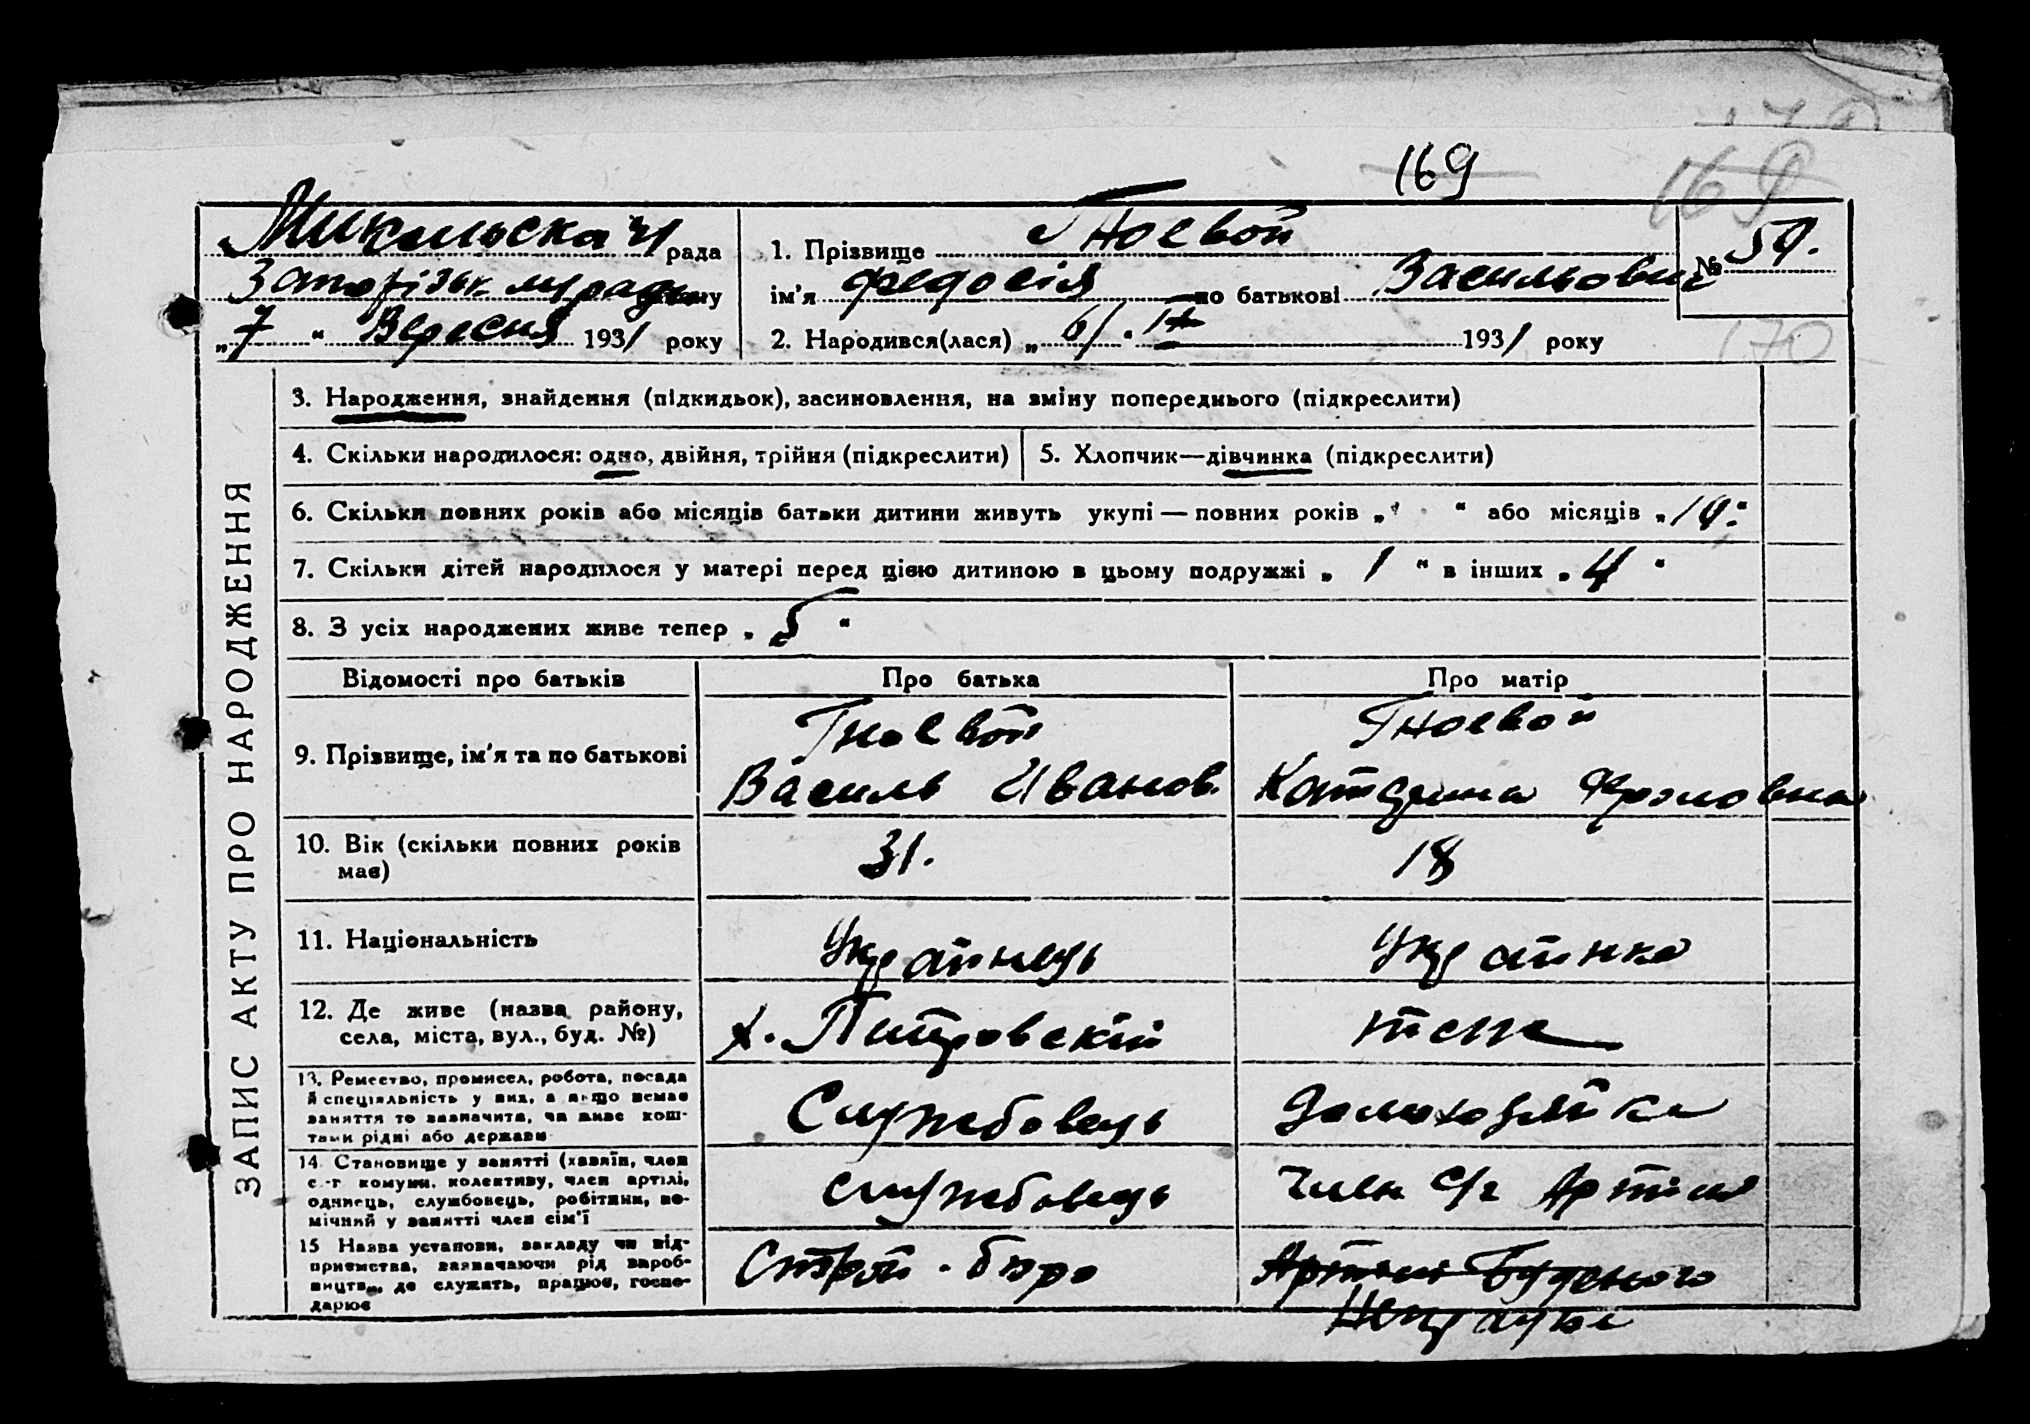 169
169
Микольска
рада
1. Прізвище Гноевой
№ 59.
ім'я Федосія по батькові Васильовн
„7“ Вересня 1931 року
2. Народився(лася) „6/“ IX 1931 року
170
ЗАПИС АКТУ ПРО НАРОДЖЕННЯ
3. Народження, знайдення (підкидьок), засиновлення, на зміну попереднього (підкреслити)
4. Скільки народилося: одно, двійня, трійня (підкреслити)
5. Хлопчик—дівчинка (підкреслити)
6. Скільки повних років або місяців батьки дитини живуть укупі — повних років „ “ або місяців „
7. Скільки дітей народилося у матері перед цією дитиною в цьому подружжі „ 1 “ в інших „ 4 “
8. З усіх народжених живе тепер „ 5 “
Відомості про батьків
Про батька
Про матір
9. Прізвище, ім'я та по батькові
Гноевой
Василь Иванов.
Гноевой
Катерина Фроловна
10. Вік (скільки повних років
має)
31.
18
11. Національність
Українець
Українка
12. Де живе (назва району,
села, міста, вул., буд. №)
х. Петровскій
теж
13. Ремество, промисел, робота, посада
й спеціяльність у них, а якщо немає
заняття то зазначити, чи живе кош-
тами рідні або держави
Службовець
14. Становище у занятті (хазяїн, член
с.-г комуни, колективу, член артілі,
одинець, службовець, робітник, по-
мічний у занятті член сім'ї
службовець
Член С/г Артіли
15 Назва установи, закладу чи під-
приємства, зазначаючи рід вироб-
ництва, де служить, працює, госпо-
дарює
Строй-бюро
Артілі Будьоного